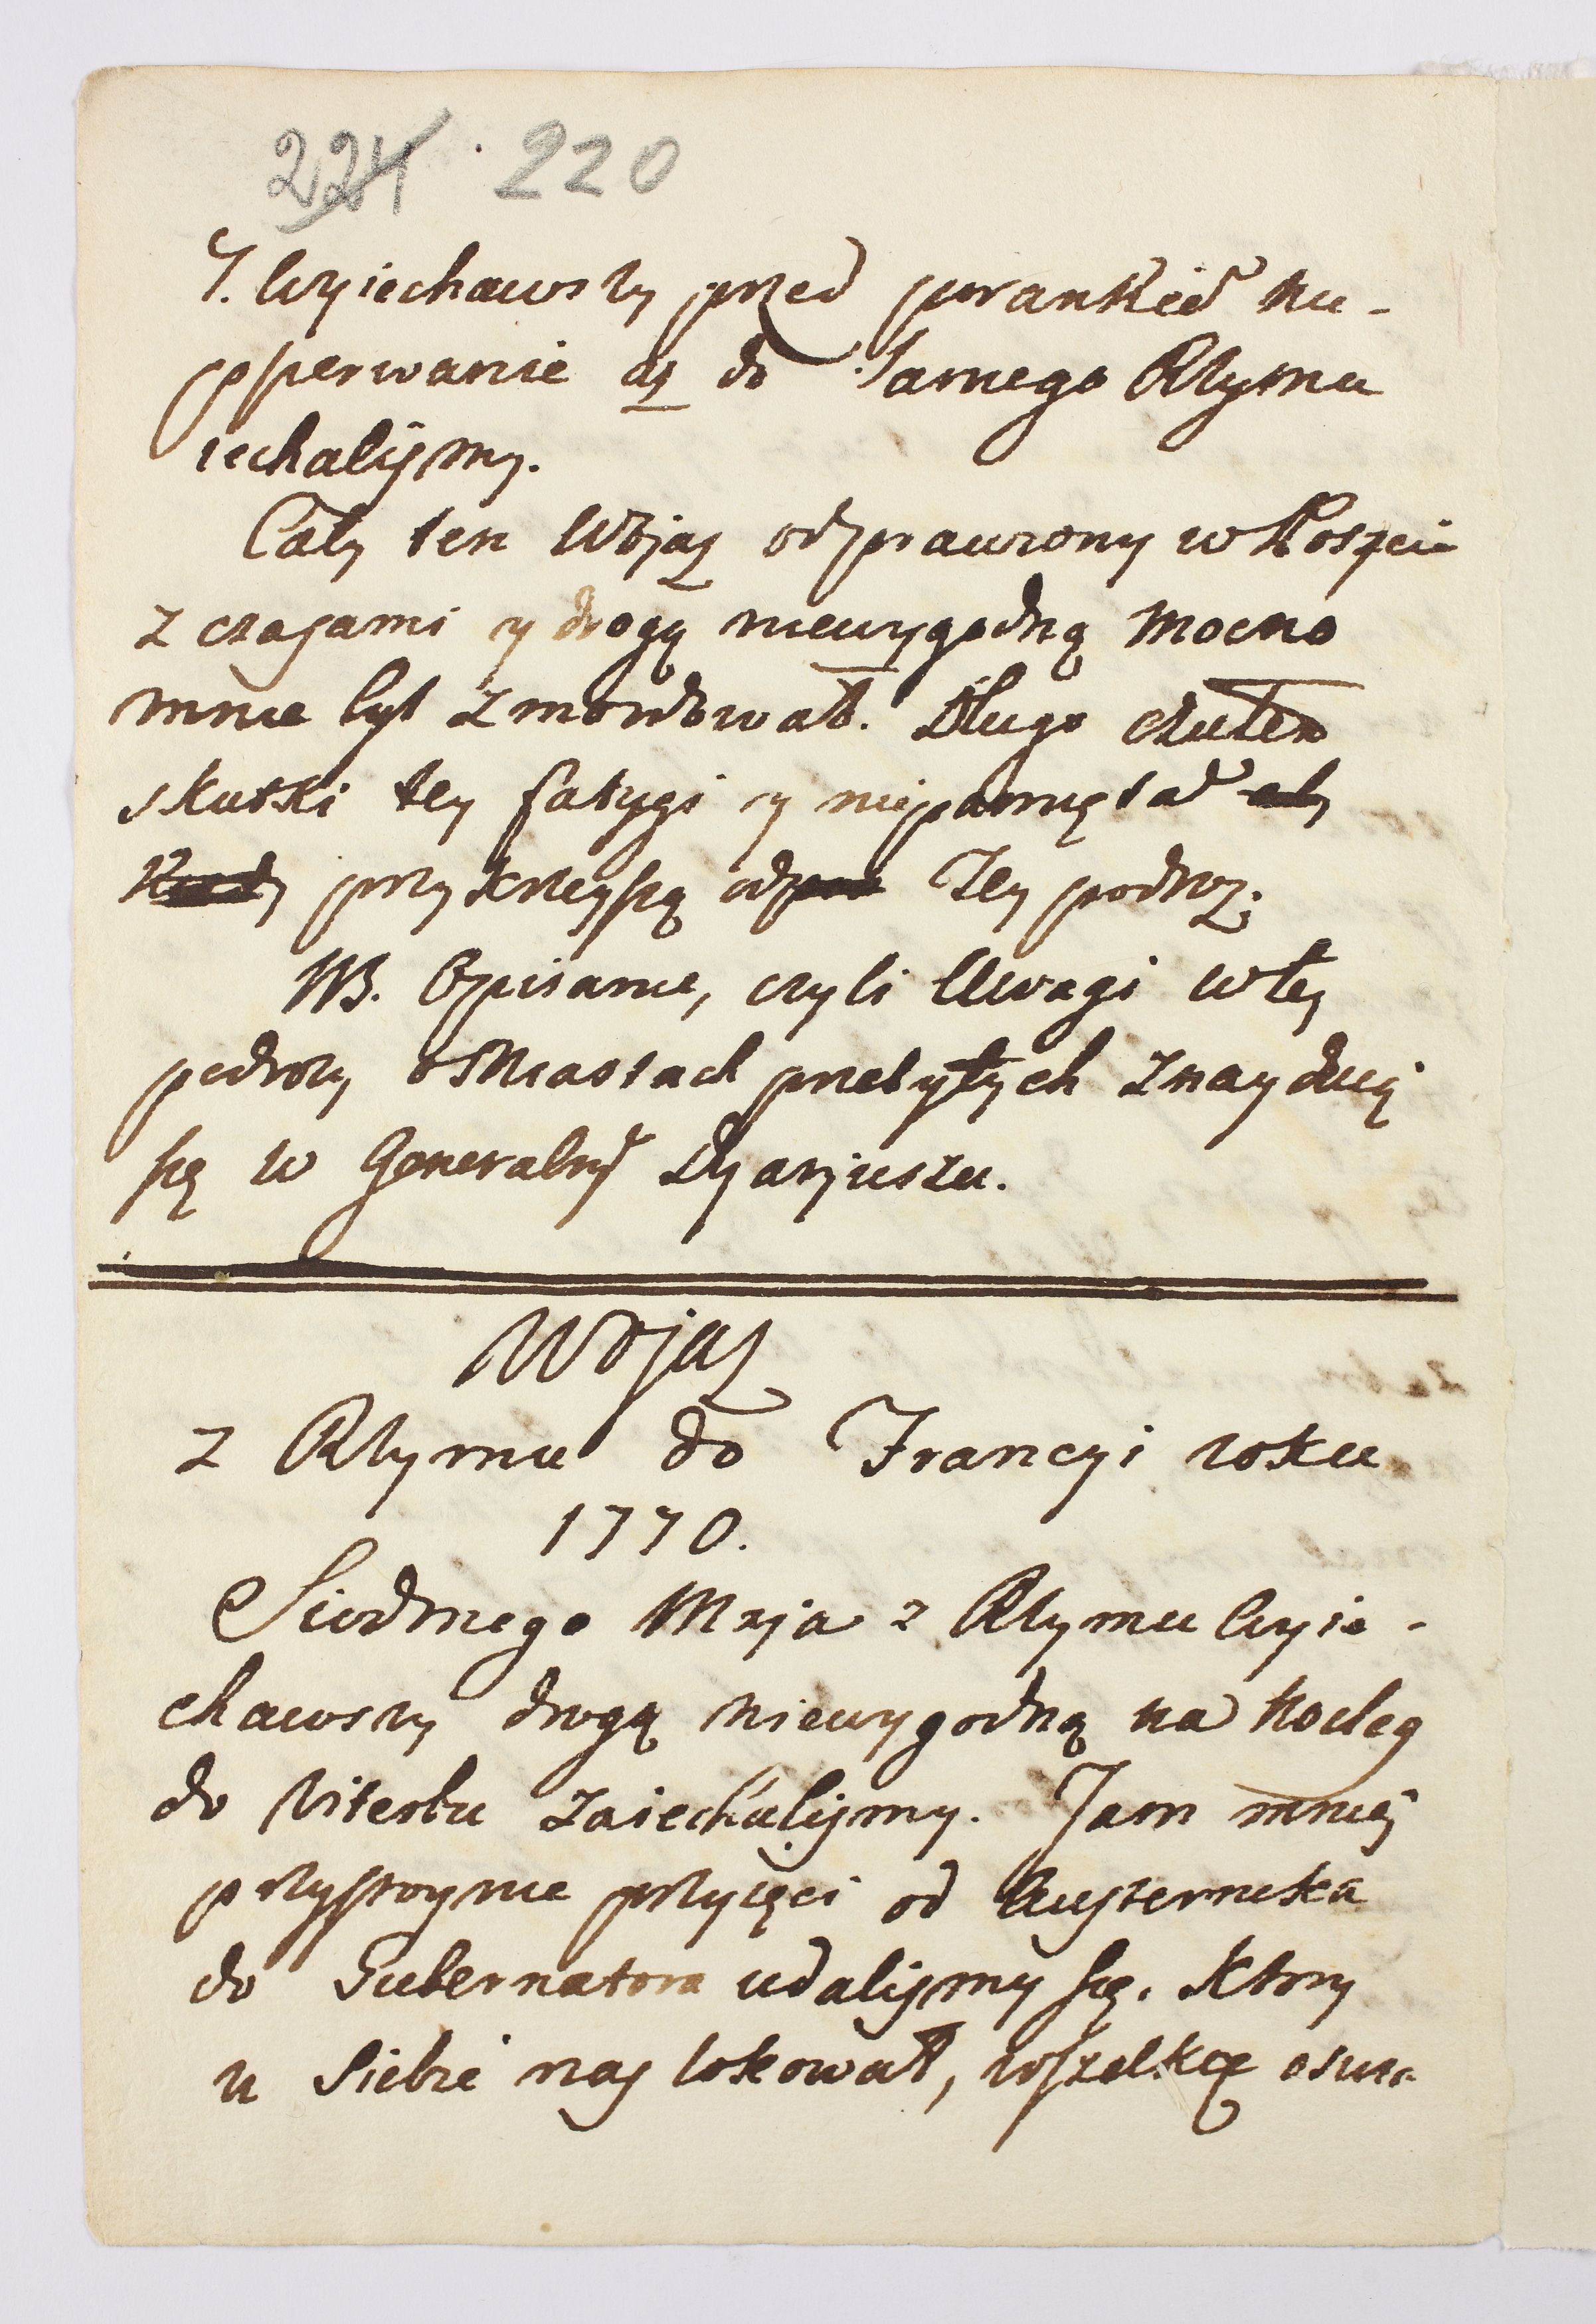 221 220
Y. Wyiechawszy przed porankiē nu-
przerwanie aż do Samego Rzymu
iechaliśmy.
Cały ten Wojaż odprawiony w
z czasami y drogą niewygodną mocno
mnie był zmordował. Długo czułem
skutki tey fatygi y niepamiętā
przykrzeyszą od Tey podroż.
NB. Opisanie, czyli Uwagi w tey
podroży o Miastach przebytych znayduią
się w Generalnȳ Dyarjuszu.
Wojaż
z Rzymu do Francyi roku
1770.
Siodmego Maja z Rzymu wyie-
chawszy drogą niewygodną na Nocleg
do Viterbu zaiechaliśmy. Tam mniej
przystoynie przyięci od Austernika
do Gubernatora udaliśmy się. Ktory
u Siebie nas lokował, wszelkie